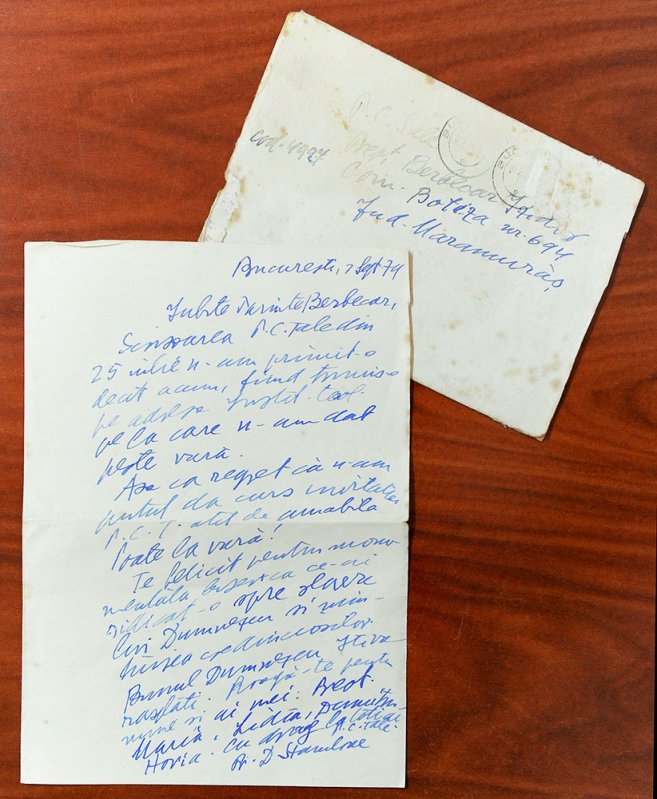 P.C. Sale
Preot Berbecar Isidor
Com. Botiza nr. 694
Jud. Maramureș,
cod. 4927
București, 7 Sept 74
Iubite Părinte Berbecar,
Scrisoarea P.C. Tale din
25 iulie n-am primit-o
decât acum, fiind trimisă
pe adresa Instit. teol.
pe la care n-am dat
peste vară.
Așa că regret că n-am
putut da curs invitației
P.C.T. atât de amabilă
Poate la vară!
Te felicit pentru monu-
mentala biserică ce-ai
ridicat-o spre slava
lui Dumnezeu și mân-
tuirea credincioșilor
Bunul Dumnezeu îți va
răsplăti. Roagă-te pentru
mine și ai mei: Preot
Maria, Lidia, Dumitru
Horia. Cu drag la toți ai
P.C. Tale
Pr. D Staniloae